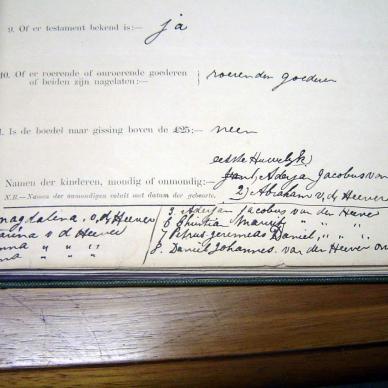 9. Of er testament bekend is:— ja
10. Of er roerende of onroerende goederen
of beiden zijn nagelaten:— roerenden goederen
1. Is de boedel naar gissing boven de £25:— neen
eeste Huwelijk
Adrjan Jacobus van
Namen der kinderen, mondig of onmondig:— 2) Abraham v. d. Heever
N.B.—Namen der onmondigen voluit met datum der geboorte.
magdalena. v. d. Heever 3. Adrjan Jacobus van der Heever
arina v d Heever 6 Christia " " "
nna " " " 7 Petrus Jeremeas Daniel, " " "
na " " " 8. Daniel Johannes. van der Heever